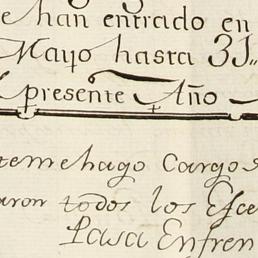 e han entrado en
Mayo hasta 31,,
presente Año
temehago Cargo
aron todos los Efe
Pasa Enfren